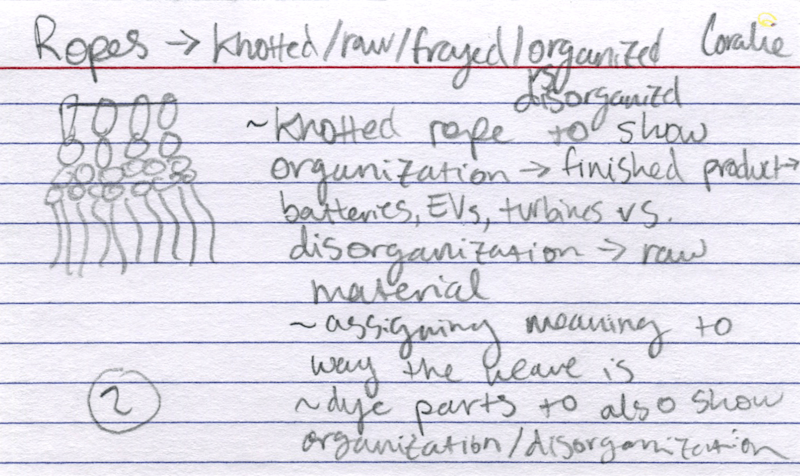 Ropes → knotted/raw/frayed/organized Coralie
vs
disorganizd
~knotted rope to show
organization → finished product→
batteries, EVs, turbines vs.
disorganization → raw
material
~assigning meaning to
way the weave is
~dye parts to also show
organization/disorganization
2